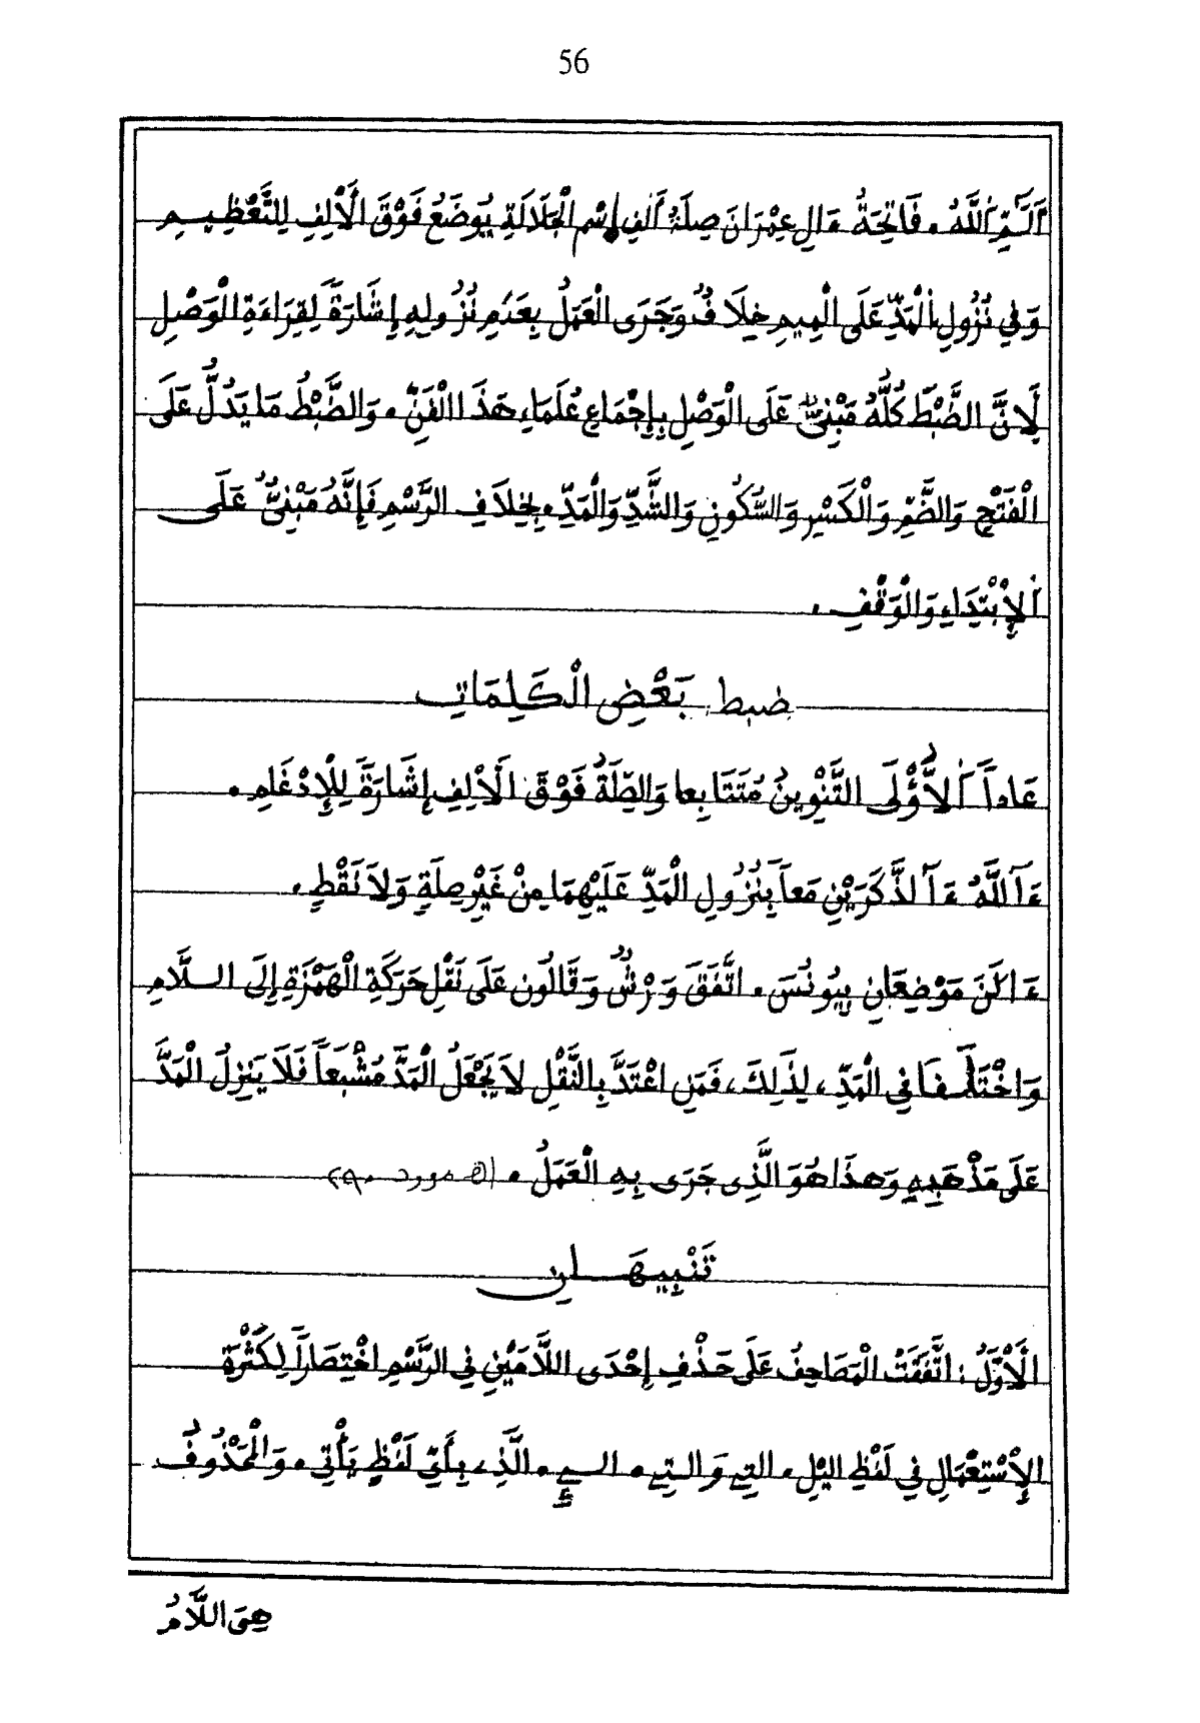 56
أَلَمِّٓ أَللَّهُ . فَاتِحَةُ ءَالِ عِمْرَانَ صِلَةُ أَلِفِ إِسْمِ الْجَلَالَةِ يُوضَعُ فَوْقَ الْأَلِفِ لِلتَّعْظِيمِ
وَفِي نُزُولِ الْمَدِّ عَلَى الْمِيمِ خِلَافٌ وَجَرَى الْعَمَلُ بِعَدَمِ نُزُولِهِ إِشَارَةً لِقِرَاءَةِ الْوَصْلِ
لِأَنَّ الضَّبْطَ كُلَّهُ مَبْنِيٌّ عَلَى الْوَصْلِ بِإِجْمَاعِ عُلَمَاءِ هَذَا الْفَنِّ . وَالضَّبْطُ مَا يَدُلُّ عَلَى
الْفَتْحِ وَالضَّمِّ وَالْكَسْرِ وَالسُّكُونِ وَالشَّدِّ وَالْمَدِّ . بِخِلَافِ الرَّسْمِ فَإِنَّهُ مَبْنِيٌّ عَلَى
الْإِبْتِدَاءِ وَالْوَقْفِ .
ضبط بَعْضِ الْكَلِمَاتِ
عَاداً اَلُاؤْلَى التَّنْوِينُ مُتَتَابِعا وَالصِّلَةُ فَوْقَ الْأَلِفِ إِشَارَةً لِلْإِدْغَامِ .
ءَآللَّهُ ءَآلذَّكَرَيْنِ مَعاً بِنُزُولِ الْمَدِّ عَلَيْهِمَا مِنْ غَيْرِ صِلَةٍ وَلَا نَقْطٍ .
ءَالَنَ مَوْضِعَانِ بِيُونُسَ . اتَّفَقَ وَرْشٌ وَقَالُون عَلَى نَقْلِ حَرَكَةِ الْهَمْزَةِ إِلَى السلَّامِ
وَاخْتَلَفَا فِي الْمَدِّ ، لِذَلِكَ ، فَمَنِ اعْتَدَّ بِالنَّقْلِ لَا يَجْعَلُ الْمَدَّ مُشْبَعاً فَلَا يَنزِلُ الْمَدَّ
عَلَى مَذْهَبِهِ وَهَذَا هُوَ الَّذِى جَرَى بِهِ الْعَمَلُ . (اﻫ مورد ٩٠)
تَنْبِيهَانِ
الْأَوَّلُ : اتَّفَقَتْ الْمَصَاحِفُ عَلَى حَذْفِ إِحْدَى اللَّامَيْنِ فِي الرَّسْمِ اخْتِصَاراً لِكَثْرَةِ
الْإِسْتِعْمَالِ فِي لَفْظِ اليْلِ . التِي وَالتِي . الـﮯ . الَّذِ ، بِأَيِّ لَفْظٍ يَأْتِي . وَالْمَحْذُوفُ
هِيَ اللَّامُ